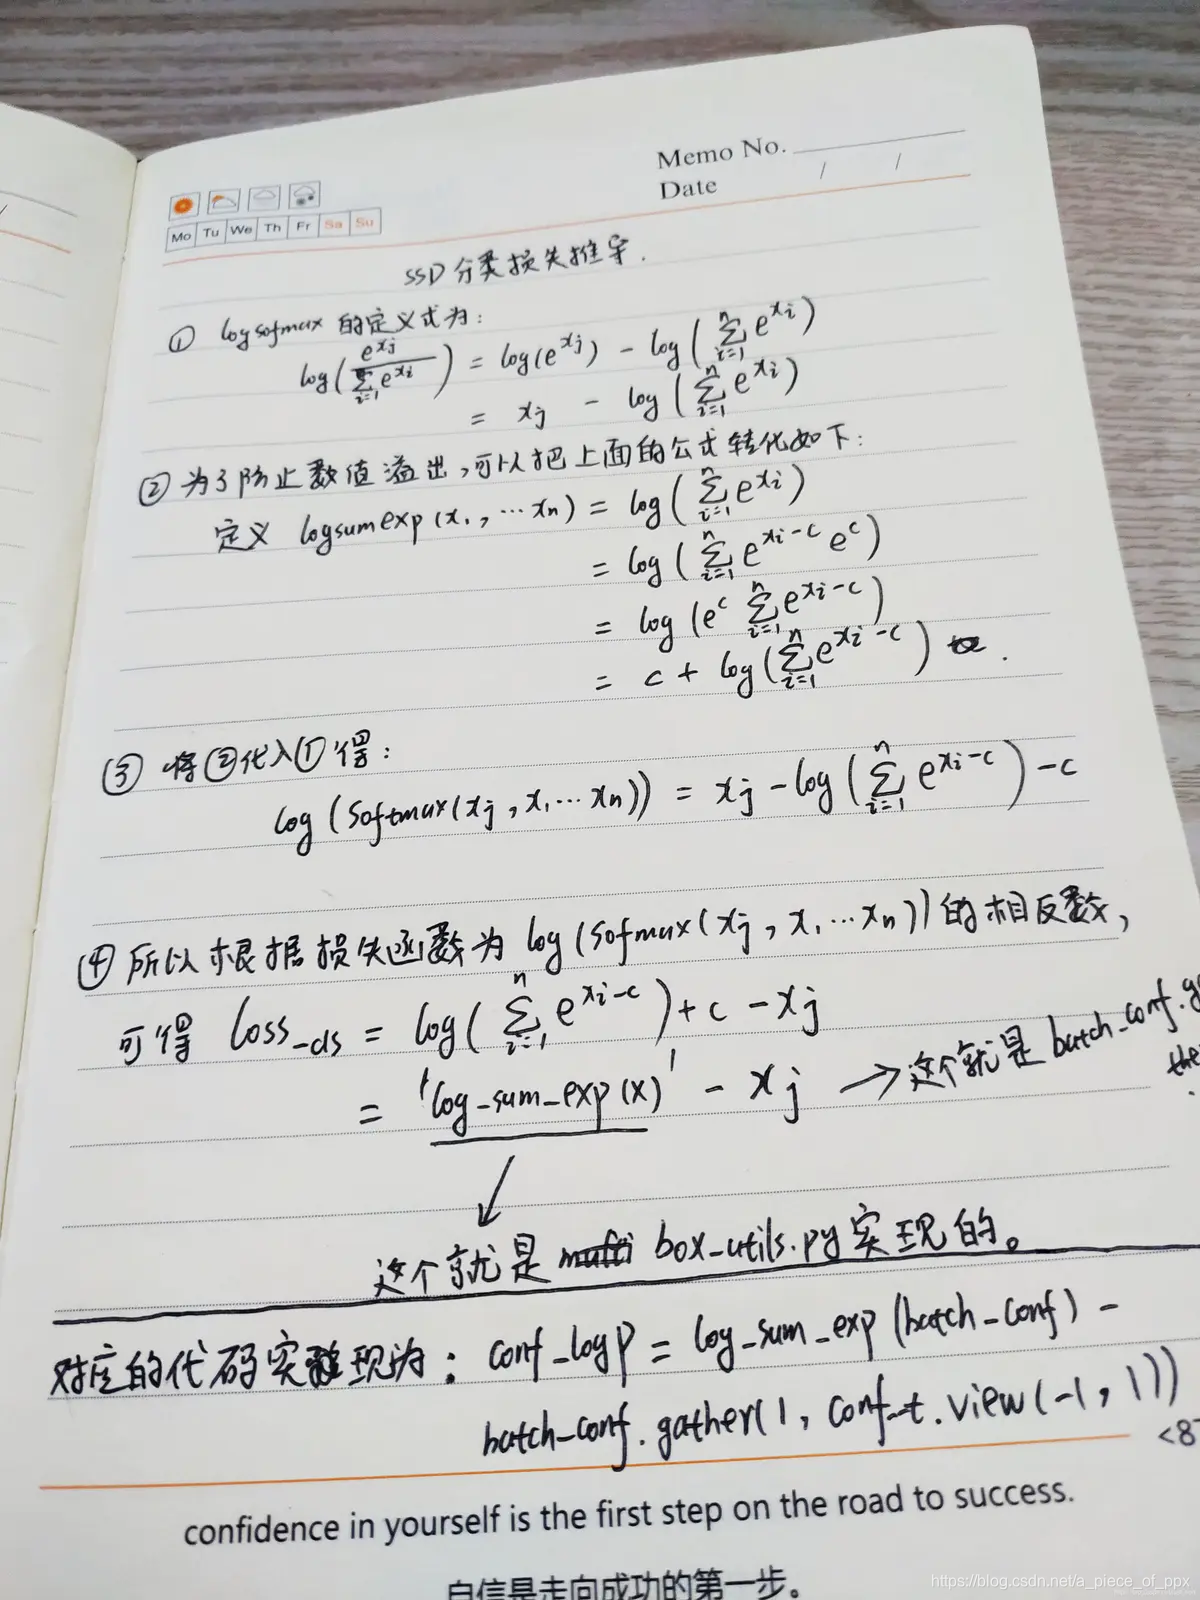 Memo No.
Date / /
Mo Tu We Th Fr Sa Su
SSD分类损失推导.
① logsofmax 的定义式为:
log(e^{xj} / ∑_{i=1} e^{xi}) = log(e^{xj}) - log(∑_{i=1}^{n} e^{xi})
= xj - log(∑_{i=1}^{n} e^{xi})
② 为了防止数值溢出,可以把上面的公式转化如下:
定义 logsumexp(x1, ⋯xn) = log(∑_{i=1}^{n} e^{xi})
= log(∑_{i=1}^{n} e^{xi-c} e^{c})
= log(e^{c} ∑_{i=1}^{n} e^{xi-c})
= c + log(∑_{i=1}^{n} e^{xi-c}) .
③ 将②代入①得:
log(softmax(xj, x1⋯xn)) = xj - log(∑_{i=1}^{n} e^{xi-c}) - c
④ 所以根据损失函数为 log(sofmax(xj, x1⋯xn))的相反数,
可得 Loss_cls = log(∑_{i=1}^{n} e^{xi-c}) + c - xj
= 'log_sum_exp(x)' - xj → 这个就是 batch_conf.g
the
↓
这个就是 box_utils.py实现的。
对应的代码实现为: conf_logP = log_sum_exp(batch_conf) -
batch_conf.gather(1, conf_t.view(-1, 1))
<8
confidence in yourself is the first step on the road to success.
自信是走向成功的第一步。
https://blog.csdn.net/a_piece_of_ppx